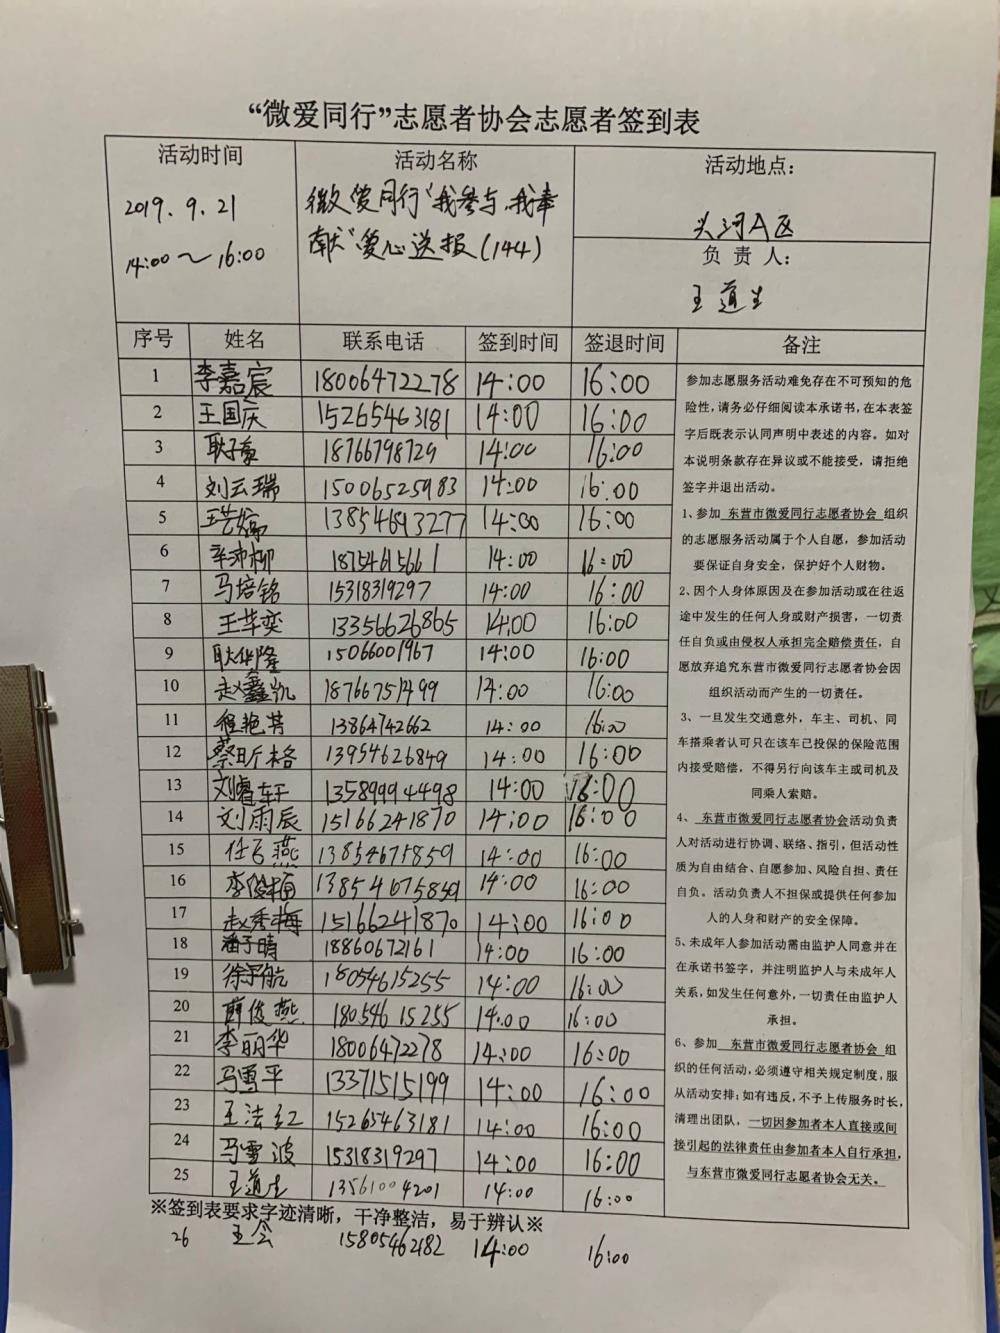 “微爱同行”志愿者协会志愿者签到表
活动时间
2019.9.21
14:00～16:00
活动名称
微爱同行“我参与.我奉
献”爱心送报(144)
活动地点:
头河A区
负 责 人:
王道生
序号 姓名 联系电话 签到时间 签退时间 备注
1 李嘉宸 18006472278 14:00 16:00
2 王国庆 15265463181 14:00 16:00
3 耿子豪 18766798729 14:00 16:00
4 刘云瑞 15006525983 14:00 16:00
5 13854693277 14:00 16:00
6 辛沛柳 18754615661 14:00 16:00
7 马培铭 15318319297 14:00 16:00
8 王苹奕 13356626865 14:00 16:00
9 耿华隆 15066001967 14:00 16:00
10 赵鑫凯 18766751499 14:00 16:00
11 程艳芳 13864742662 14:00 16:00
12 蔡昕格 13954626849 14:00 16:00
13 刘睿轩 13589994498 14:00 16:00
14 刘雨辰 15166241870 14:00 16:00
15 任飞燕 13854675859 14:00 16:00
16 13854675859 14:00 16:00
17 赵秀梅 15166241870 14:00 16:00
18 潘子晴 18860672161 14:00 16:00
19 徐子航 18054615255 14:00 16:00
20 薛俊燕 18054615255 14:00 16:00
21 李丽华 18006472278 14:00 16:00
22 马雪平 13371515199 14:00 16:00
23 王法红 15265463181 14:00 16:00
24 马雪波 15318319297 14:00 16:00
25 王道生 13561004201 14:00 16:00
参加志愿服务活动难免存在不可预知的危
险性,请务必仔细阅读本承诺书,在本表签
字后既表示认同声明中表述的内容。如对
本说明条款存在异议或不能接受,请拒绝
签字并退出活动。
1、参加 东营市微爱同行志愿者协会 组织
的志愿服务活动属于个人自愿,参加活动
要保证自身安全,保护好个人财物。
2、因个人身体原因及在参加活动或在往返
途中发生的任何人身或财产损害,一切责
任自负或由侵权人承担完全赔偿责任,自
愿放弃追究东营市微爱同行志愿者协会因
组织活动而产生的一切责任。
3、一旦发生交通意外,车主、司机、同
车搭乘者认可只在该车已投保的保险范围
内接受赔偿,不得另行向该车主或司机及
同乘人索赔。
4、 东营市微爱同行志愿者协会活动负责
人对活动进行协调、联络、指引,但活动性
质为自由结合、自愿参加、风险自担、责任
自负。活动负责人不担保或提供任何参加
人的人身和财产的安全保障。
5、未成年人参加活动需由监护人同意并在
在承诺书签字,并注明监护人与未成年人
关系,如发生任何意外,一切责任由监护人
承担。
6、参加 东营市微爱同行志愿者协会 组
织的任何活动,必须遵守相关规定制度,服
从活动安排;如有违反,不予上传服务时长,
清理出团队,一切因参加者本人直接或间
接引起的法律责任由参加者本人自行承担,
与东营市微爱同行志愿者协会无关。
※签到表要求字迹清晰，干净整洁，易于辨认※
26 王会 15805462182 14:00 16:00